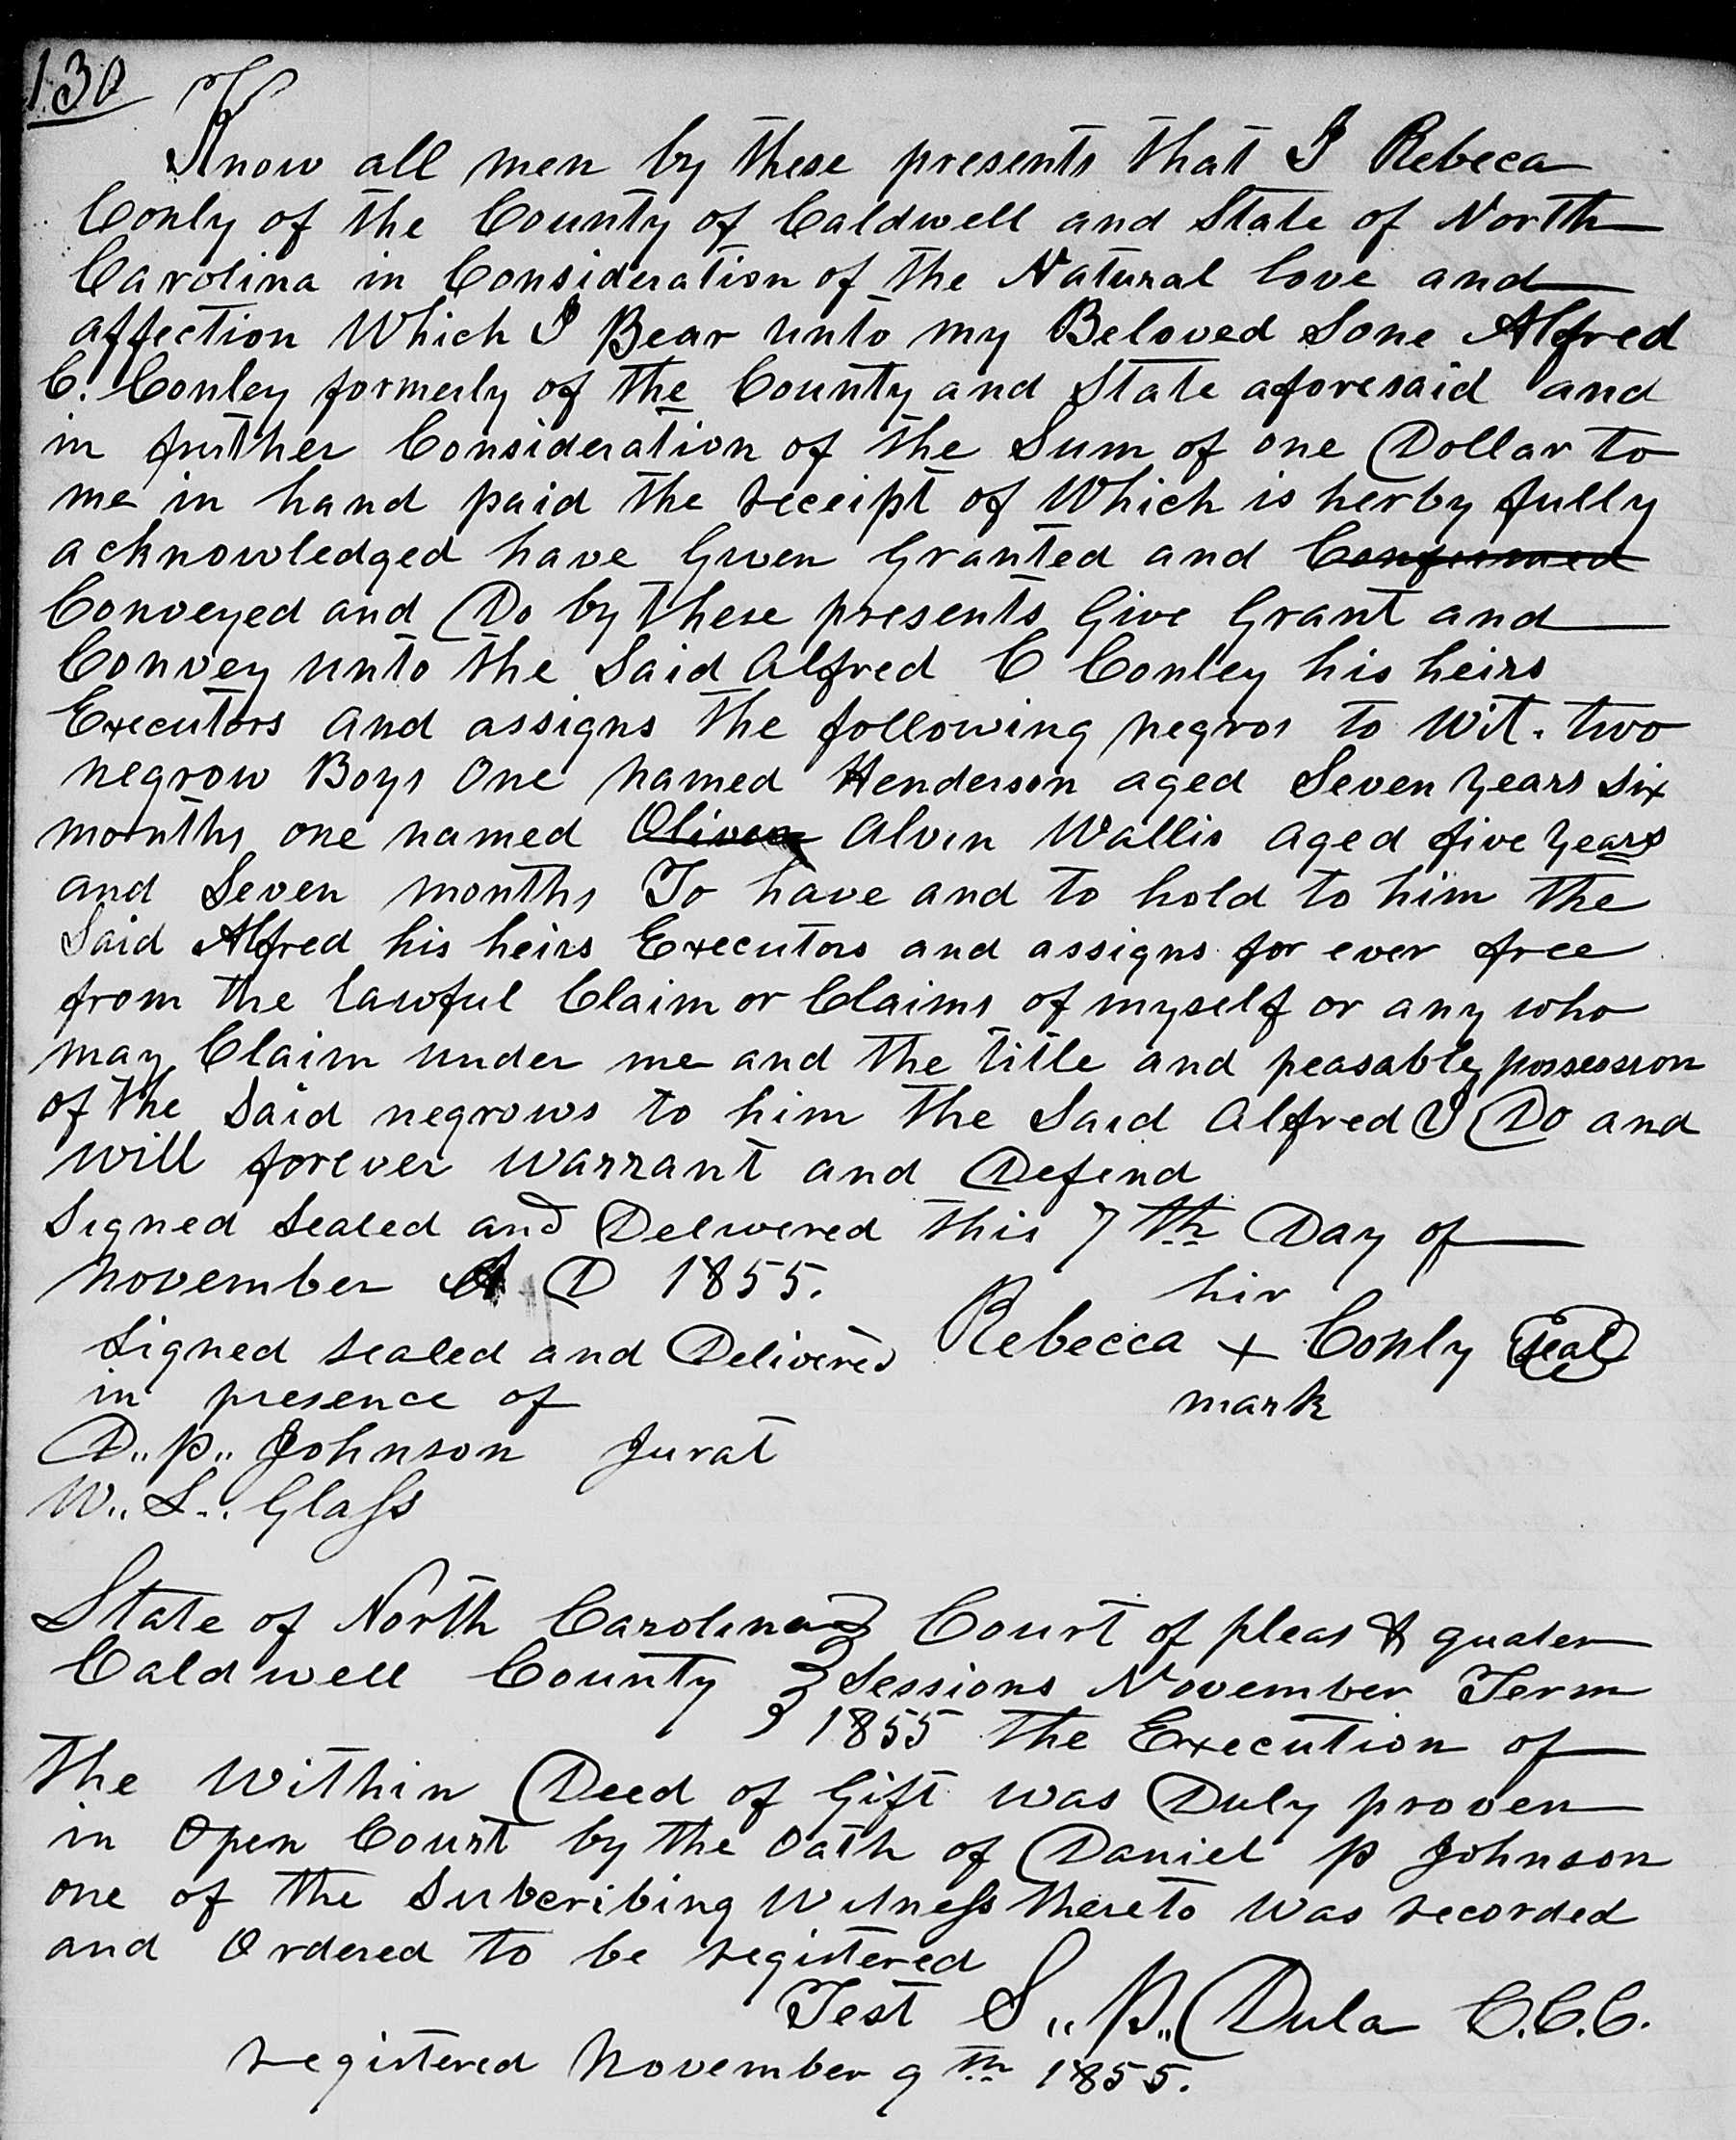 130
Know all men by these presents that I Rebeca
Conly of the County of Caldwell and State of North
Carolina in Consideration of the Natural love and
affection Which I Bear unto my Beloved Sone Alfred
C. Conley formerly of the County and State aforesaid and
in further Consideration of the Sum of one Dollar to
me in hand paid the receipt of Which is herby fully
acknowledged have Given Granted and Confirmed
Conveyed and Do by these presents Give Grant and
Convey unto the Said Alfred C Conley his heirs
Executors and assigns the following negros to Wit. two
negrow Boys One named Henderson aged Seven years six
months one named Oliver Alvin Wallis aged five years
and Seven months To have and to hold to him the
Said Alfred his heirs Executors and assigns for ever free
from the lawful Claim or Claims of myself or any who
may Claim under me and the title and peasable possession
of the said negrows to him the Said Alfred I Do and
will forever warrant and Defend
Signed Sealed and Delivered this 7th Day of
November A D 1855.
hir
Signed sealed and Delivered Rebecca + Conly Seal
in presence of mark
D,, P,, Johnson Jurat
W,, L,, Glass
State of North Carolina Court of pleas & quater
Caldwell County Sessions November Term
1855 the Execution of
the Within Deed of Gift was Duly proven
in Open Court by the Oath of Daniel P Johnson
one of the Subcribing Witness thereto was recorded
and Ordered to be registered
Test S,, P,, Dula C.C.C.
registered November 9th 1855.